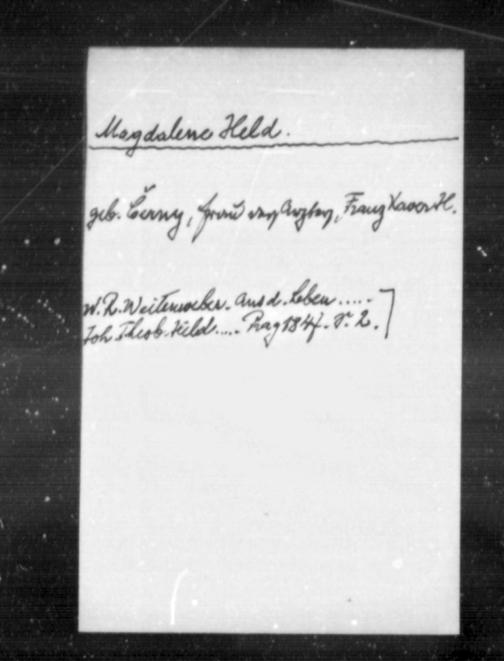 Magdalene Held.
geb. Černy, Frau des Arztes, Franz Xaver H.
W. R. Weitenweber. Aus d. Leben .....
Joh. Theob. Held .... Prag 1847. S. 2. ]